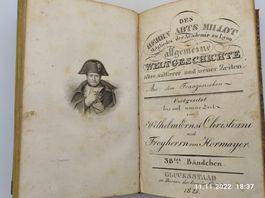 DES
HERRN ABTS MILLOT
Mitgliedes der Academie zu Lyon
allgemeine
WELTGESCHICHTE
alter, mittlerer und neuer Zeiten.
Aus dem Französischen
Fortgesetzt
bis auf unsre Zeit
von
Wilhelm Ernst Christiani
und
Freyherrn von Hormayer.
38stes Bändchen.
GLÜCKSSTAD
11.11.2022 18:37